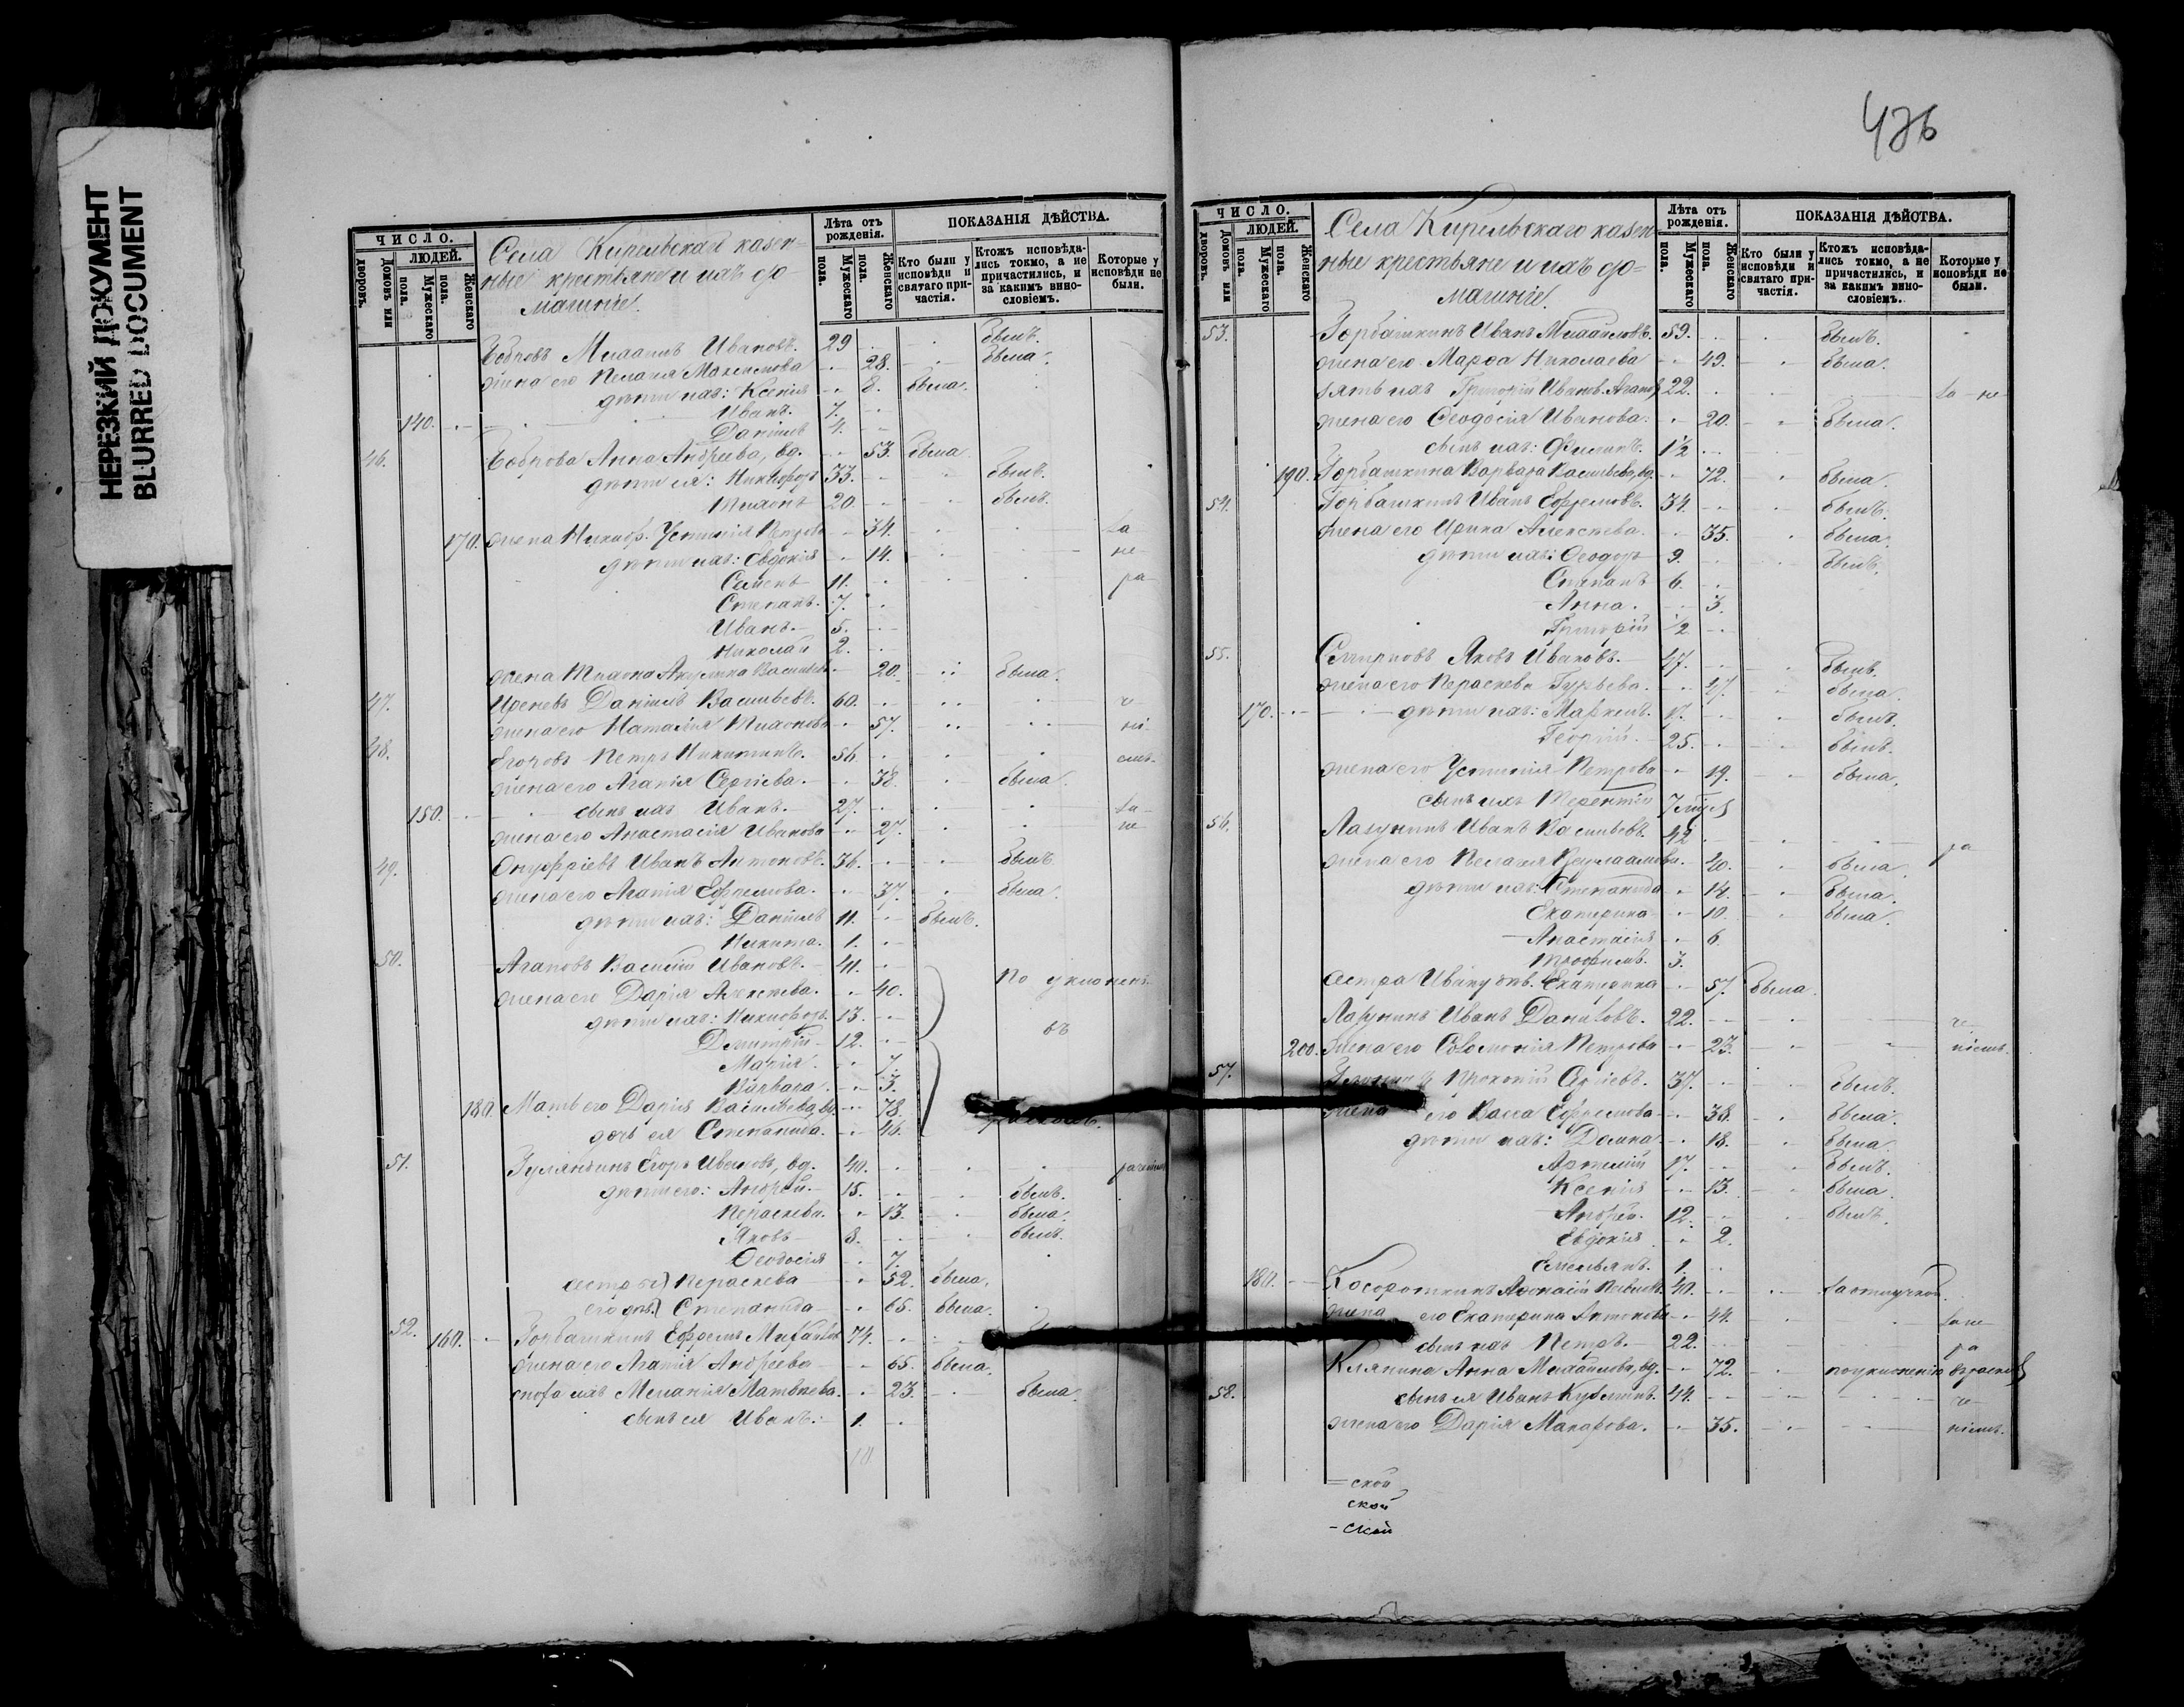 НЕРЕЗКИЙ ДОКУМЕНТ
BLURRED DOCUMENT
ЧИСЛО.
ЛЮДЕЙ.
Дворовъ.
Домовъ или
Мужескаго пола.
Женскаго пола.
Села Кирельскаго казен=
ные крестьяне и ихъ до=
машніе.
Лѣта отъ рожденія.
Мужескаго пола.
Женскаго пола.
ПОКАЗАНІЯ ДѢЙСТВА.
Кто были у исповѣди и святаго причастія.
Ктожъ исповѣдались токмо, а не причастились, и за какимъ винословіемъ.
Которые у исповѣди не были.
Бобровъ Михаилъ Ивановъ. 29 былъ.
жена его Пелагия Максимова 28. была.
дѣти ихъ: Ксенія 8. была.
Иванъ. 7.
140. Даніилъ 4.
46. Боброва Анна Андреева, вд. 53. была
дѣти ея: Никифоръ 33. былъ.
Тихонъ 20. былъ.
170. жена Никиф. Устинія Петрова 34. за
дѣти ихъ: Евдокія 14. не
Семенъ 11. ра
Степанъ. 7.
Иванъ. 5.
Николай 2.
жена Тихона Акулина Васильев. 20. была.
47. Даніилъ Васильевъ. 60. че
жена его Наталія Тихонова 57. ні
48. Петръ Никитинъ. 56. емъ.
жена его Агапія Сергіева. 38. была
150. сынъ ихъ Иванъ. 27. за
жена его Анастасія Иванова 27. не
49. Онуфріевъ Иванъ Антоновъ. 36. былъ
жена его Агапія Ефремова. 37. была.
дѣти ихъ: Даніилъ 11. былъ.
Никита. 1.
50. Агаповъ Василій Ивановъ. 41. По уклонен.
жена его Дарія Алексѣева. 40.
дѣти ихъ: Никифоръ. 13.
Дмитрій 12. въ
Марія. 7.
Варвара. 3.
180 Мать его Дарія Васильева, вд. 78.
дочь ея Степанида. 46. расколъ.
51. Егоръ Ивановъ, вд. 40. рачені
дѣти его: Андрей. 15. былъ.
Параскева. 13. была.
Яковъ 8. былъ.
Ѳеодосія 7.
сестр его) Параскева 52. была.
его дв.) Степанида 65. была.
52. 160. Горбашкинъ Ефремъ Михайлов. 74.
жена его Агапія Андреева 65. была.
сноха ихъ Меланія Матвѣева. 23. была
сынъ ея Иванъ. 1.
10
ЧИСЛО.
ЛЮДЕЙ.
Дворовъ.
Домовъ или
Мужескаго пола.
Женскаго пола.
Села Кирельскаго казен
ные крестьяне и ихъ до=
машніе.
Лѣта отъ рожденія.
Мужескаго пола.
Женскаго пола.
ПОКАЗАНІЯ ДѢЙСТВА.
Кто были у исповѣди и святаго причастія.
Ктожъ исповѣдались токмо, а не причастились, и за какимъ винословіемъ.
Которые у исповѣди не были.
53. Горбашкинъ Иванъ Михайловъ. 59. былъ.
жена его Марѳа Николаева 49. была.
зять ихъ Григорій Иванов. Агапов 22. за не
жена его Ѳеодосія Иванова. 20. была.
сынъ ихъ: Филипъ. 1½
190. Горбашкина Варвара Васильева, вд. 72. была.
54. Горбашкинъ Иванъ Ефремовъ. 34. былъ.
жена его Ирина Алексѣева. 35. была.
дѣти ихъ: Ѳеодоръ 9. былъ.
Степанъ 6.
Анна. 3.
Григорій ½
55. Смирновъ Яковъ Ивановъ. 47. былъ.
жена его Параскева Гурьева. 47. была.
170. дѣти ихъ: Маркелъ. 17. былъ.
Георгій. 25. былъ.
жена его Устинія Петрова 19. была.
сынъ ихъ Терентій 7
56. Лазунинъ Иванъ Васильевъ. 42 ра
жена его Пелагія Варлаамова. 40. была.
дѣти ихъ: Степанида 14. была.
Екатерина 10. была.
Анастасія 6.
Трофимъ. 3.
сестра Ивану дѣв. Екатерина 57. была.
Лазунинъ Иванъ Даниловъ. 22. че
200. жена его Соломонія Петрова 23. ніемъ.
57. Прокопій Сергіевъ. 37. былъ.
жена его Васса Ефремова 38. была.
дѣти ихъ: Домна 18. была.
Артемій 17. былъ.
Ксенія 13. была.
Андрей. 12. былъ.
Евдокія 2.
Емельянъ. 1.
180. Косороткинъ 40. за отлучкой.
жена его Екатерина Антонова 44. за не
сынъ ихъ Петръ. 22. ра
Клянина Анна Михайлова, вд. 72. по уклоненію въ расколъ
58. сынъ ея Иванъ Кузминъ. 44. че
жена его Дарія Макарова. 35. ніемъ.
=ской
ской
-ской